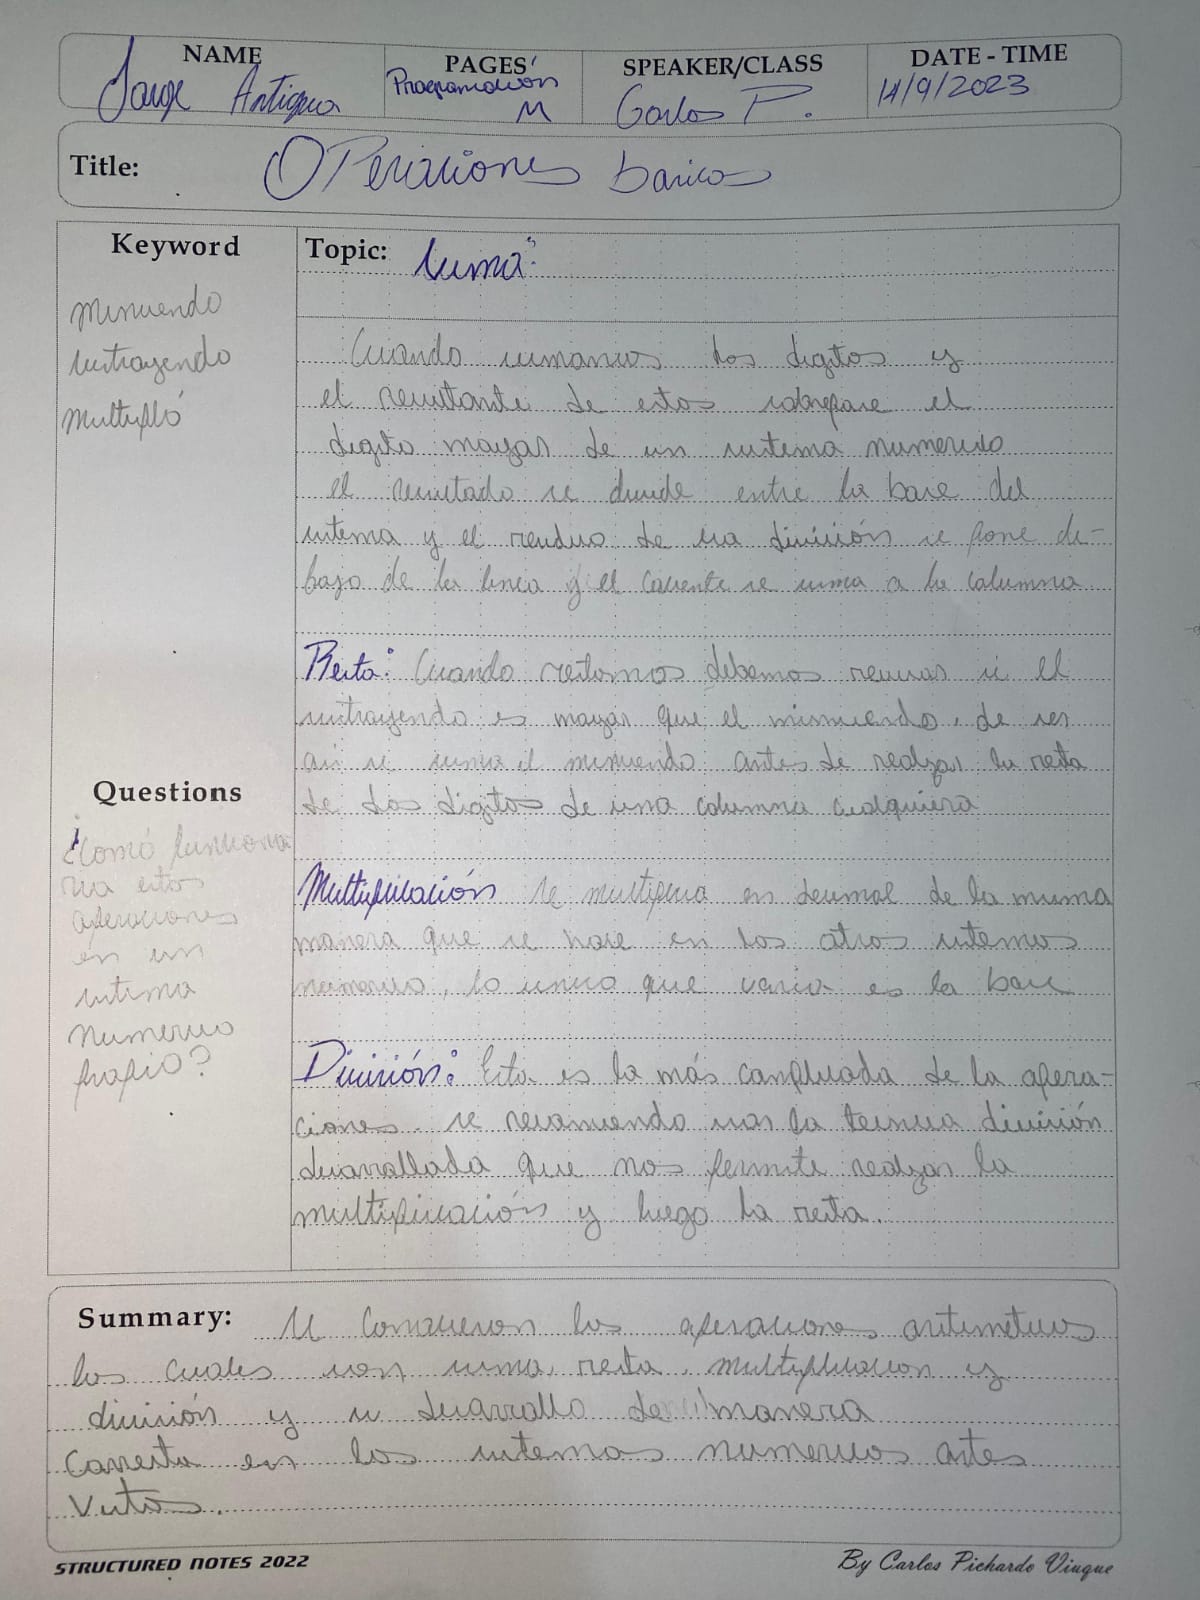 NAME
Jorge Antigua
PAGES
Programación
M
SPEAKER/CLASS
Carlos P.
DATE - TIME
14/9/2023
Title: Operaciones basicas
Keyword
minuendo
sustrayendo
Multipló
Topic: Suma:
Cuando sumamos dos digitos y
el resultante de estos sobrepase el
digito mayor de un sistema numerico
el resultado se divide entre la base del
sistema y el residuo de esa división se pone de-
bajo de la linea y el cociente se suma a la columna.
Resta: Cuando restamos debemos revisar si el
sustrayendo es mayor que el minuendo, de ser
asi se suma el minuendo antes de realizar la resta
de dos digitos de una columna cualquiera
Multiplicación se multiplica en decimal de la misma
manera que se hase en los otros sistemas
numericos, lo unico que varia es la base
División: Esta es la más complicada de la opera-
ciones. se recomienda usar la tecnica división
desarrollada que nos permite realizar la
multiplicación y luego la resta.
Questions
¿Comó funciona
ria estos
operaciones
en un
sistema
numerico
propio?
Summary: Se conocieron las operaciones aritmeticas
las cuales son suma, resta, multiplicacion y
división y se desarrollo de manera
correcta en los sistemas numericos antes
vistos.
STRUCTURED NOTES 2022
By Carlos Pichardo Viuque